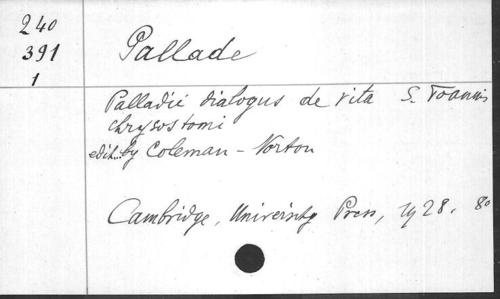 240
391
1
Pallade
Palladii dialogus de vita S. Joannis
chrysostomi
edit. by Coleman - Norton
Cambridge, University Press, 1928. 8o